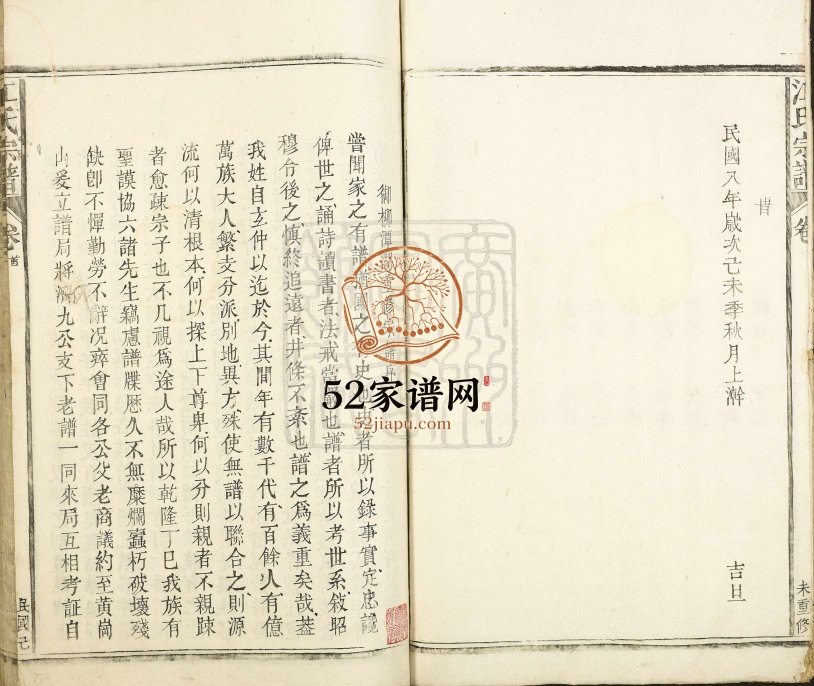 江氏宗譜
卷
未重修
昔
民國八年歲次己未季秋月上澣
吉旦
御柳潭 重修宗譜序
嘗聞家之有譜猶國之 史也 者所以錄事實定忠 
俾世之誦詩讀書者法戒當 也譜者所以考世系敘昭
穆令後之慎終追遠者井條不紊也譜之爲義重矣哉葢
我姓自玄仲以迄於今其間年有數千代有百餘人有億
萬族大人繁支分派別地異方殊使無譜以聯合之則源
流何以清根本何以探上下尊卑何以分則親者不親踈
者愈疎宗子也不几視爲途人哉所以乾隆丁巳我族有
聖謨協六諸先生竊慮譜牒歷久不無糜爛蠧朽破壞殘
缺卽不憚勤勞不辭况瘁會同各公父老商議約至黃崗
山爰立譜局將 九公支下老譜一同來局互相考証自
江氏宗譜
卷首
民國己
52家谱网
52jiapu.com